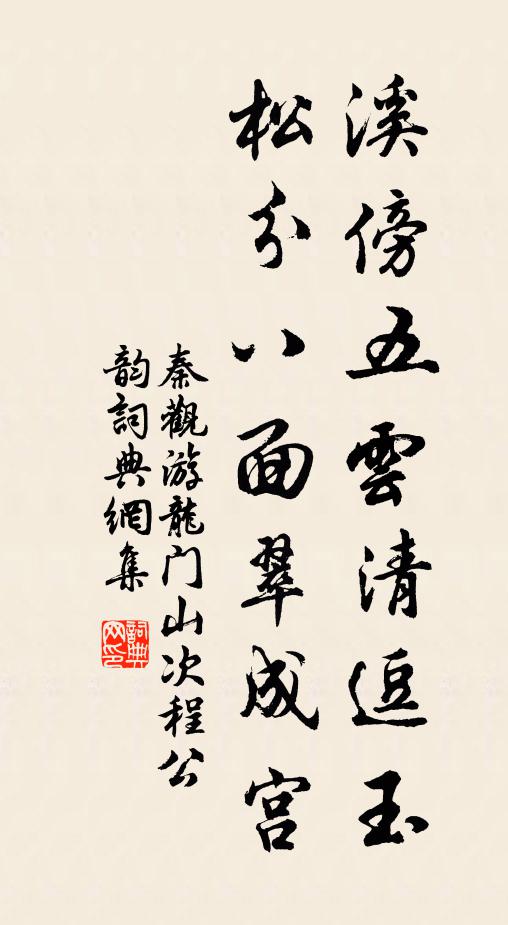 溪傍五雲清逗玉
松分八面翠成宫
秦觀游龍门山次程公
韵詞典網集
詞典
网印